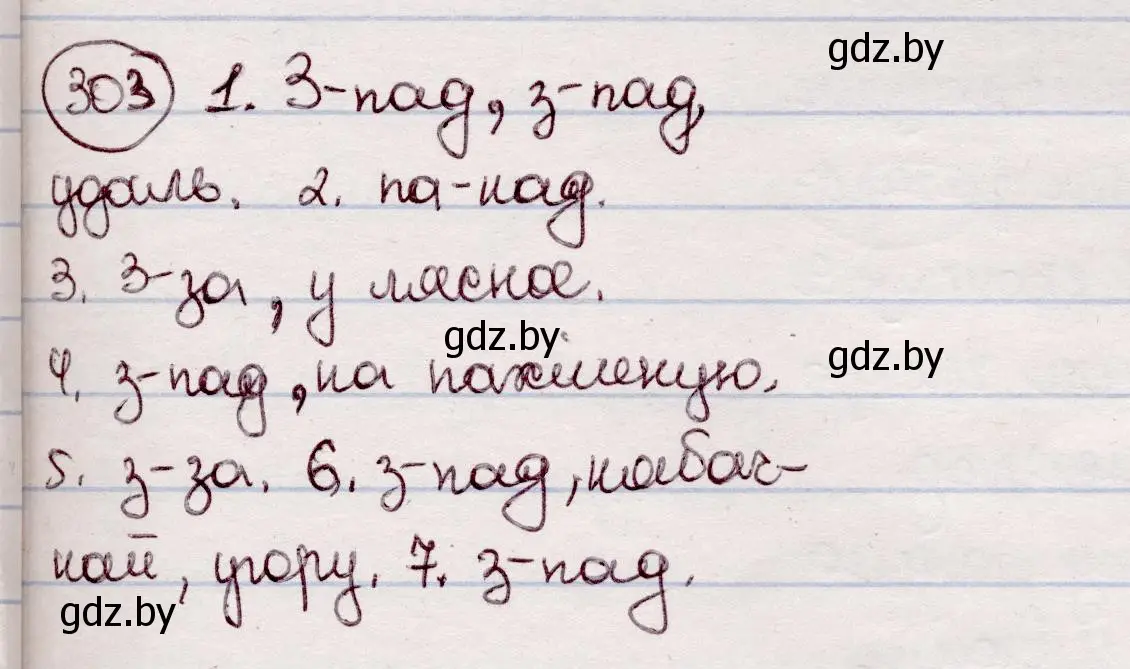 303 1. З-пад, з-пад,
удаль. 2. па-над.
3. З-за, у
4. з-пад, на
5. з-за. 6. з-пад, набач-
най, угору. 7. з-пад.
gdz.by
gdz.by
gdz.by
gdz.by